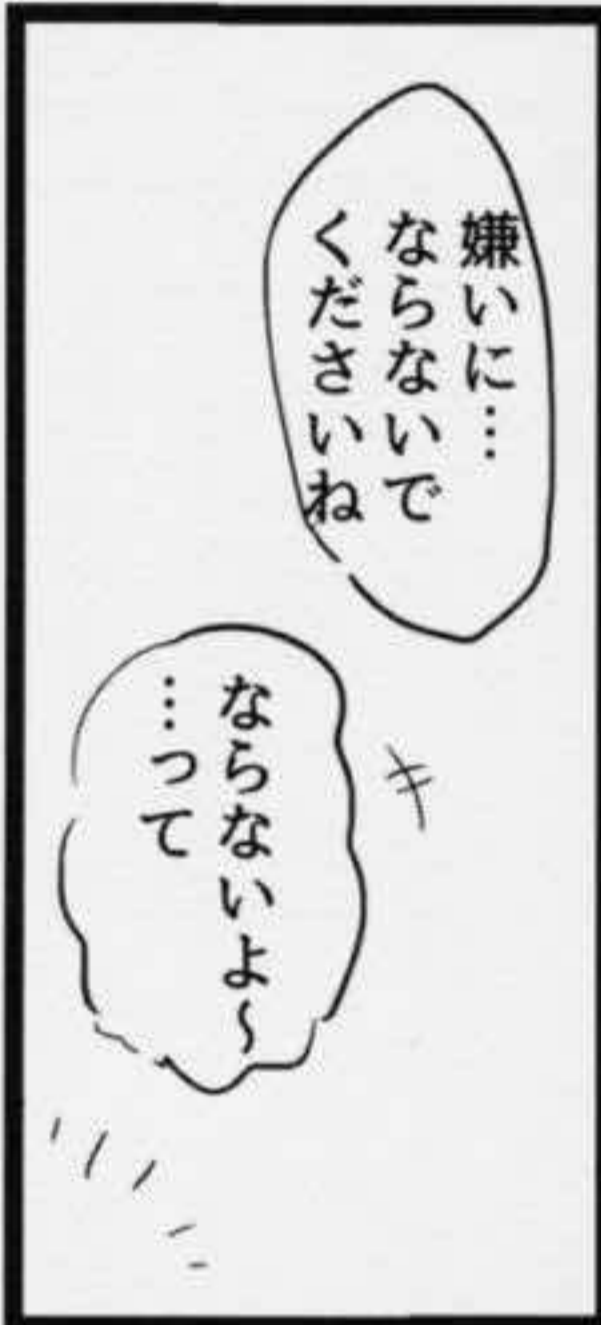 嫌いに…
ならないで
くださいね
ならないよ～
…って